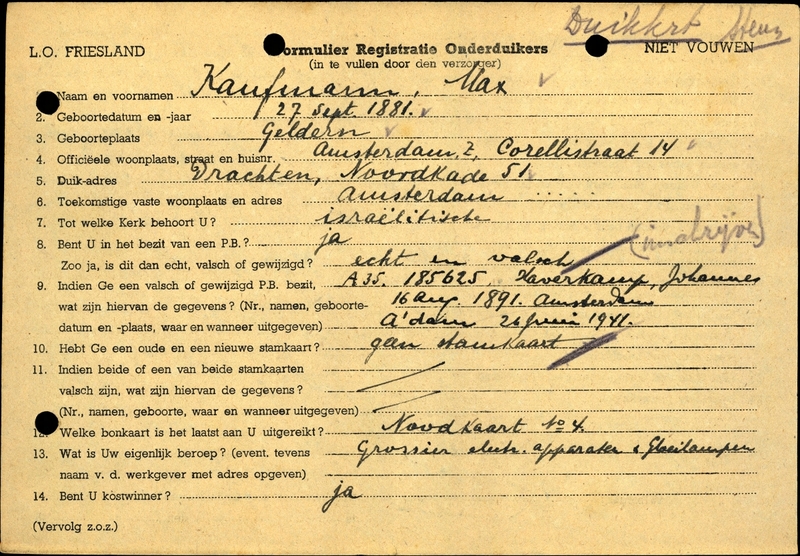 Duikkrt
L.O. FRIESLAND
ormulier Registratie Onderduikers
(in te vullen door den verzorger)
NIET VOUWEN
Naam en voornamen Kaufmann, Max
2. Geboortedatum en -jaar 27 Sept. 1881.
3. Geboorteplaats Geldern
4. Officiëele woonplaats, straat en huisnr. Amsterdam, Z, Corellistraat 14
5. Duik-adres Drachten, Noordkade 51
6. Toekomstige vaste woonplaats en adres Amsterdam
7. Tot welke Kerk behoort U? israëlitische
8. Bent U in het bezit van een P.B.? ja
Zoo ja, is dit dan echt, valsch of gewijzigd? echt en valsch
9. Indien Ge een valsch of gewijzigd P.B. bezit, A 35. 185625 Haverkamp, Johannes
wat zijn hiervan de gegevens? (Nr., namen, geboorte- 16 Aug. 1891. Amsterdam
datum en -plaats, waar en wanneer uitgegeven) A'dam 26 Juni 1941.
10. Hebt Ge een oude en een nieuwe stamkaart? geen stamkaart
11. Indien beide of een van beide stamkaarten
valsch zijn, wat zijn hiervan de gegevens?
(Nr., namen, geboorte, waar en wanneer uitgegeven)
12. Welke bonkaart is het laatst aan U uitgereikt? Noodkaart No 4.
13. Wat is Uw eigenlijk beroep? (event. tevens Grossier electr. apparaten & Gloeilampen
naam v. d. werkgever met adres opgeven)
14. Bent U kostwinner? ja
(Vervolg z.o.z.)